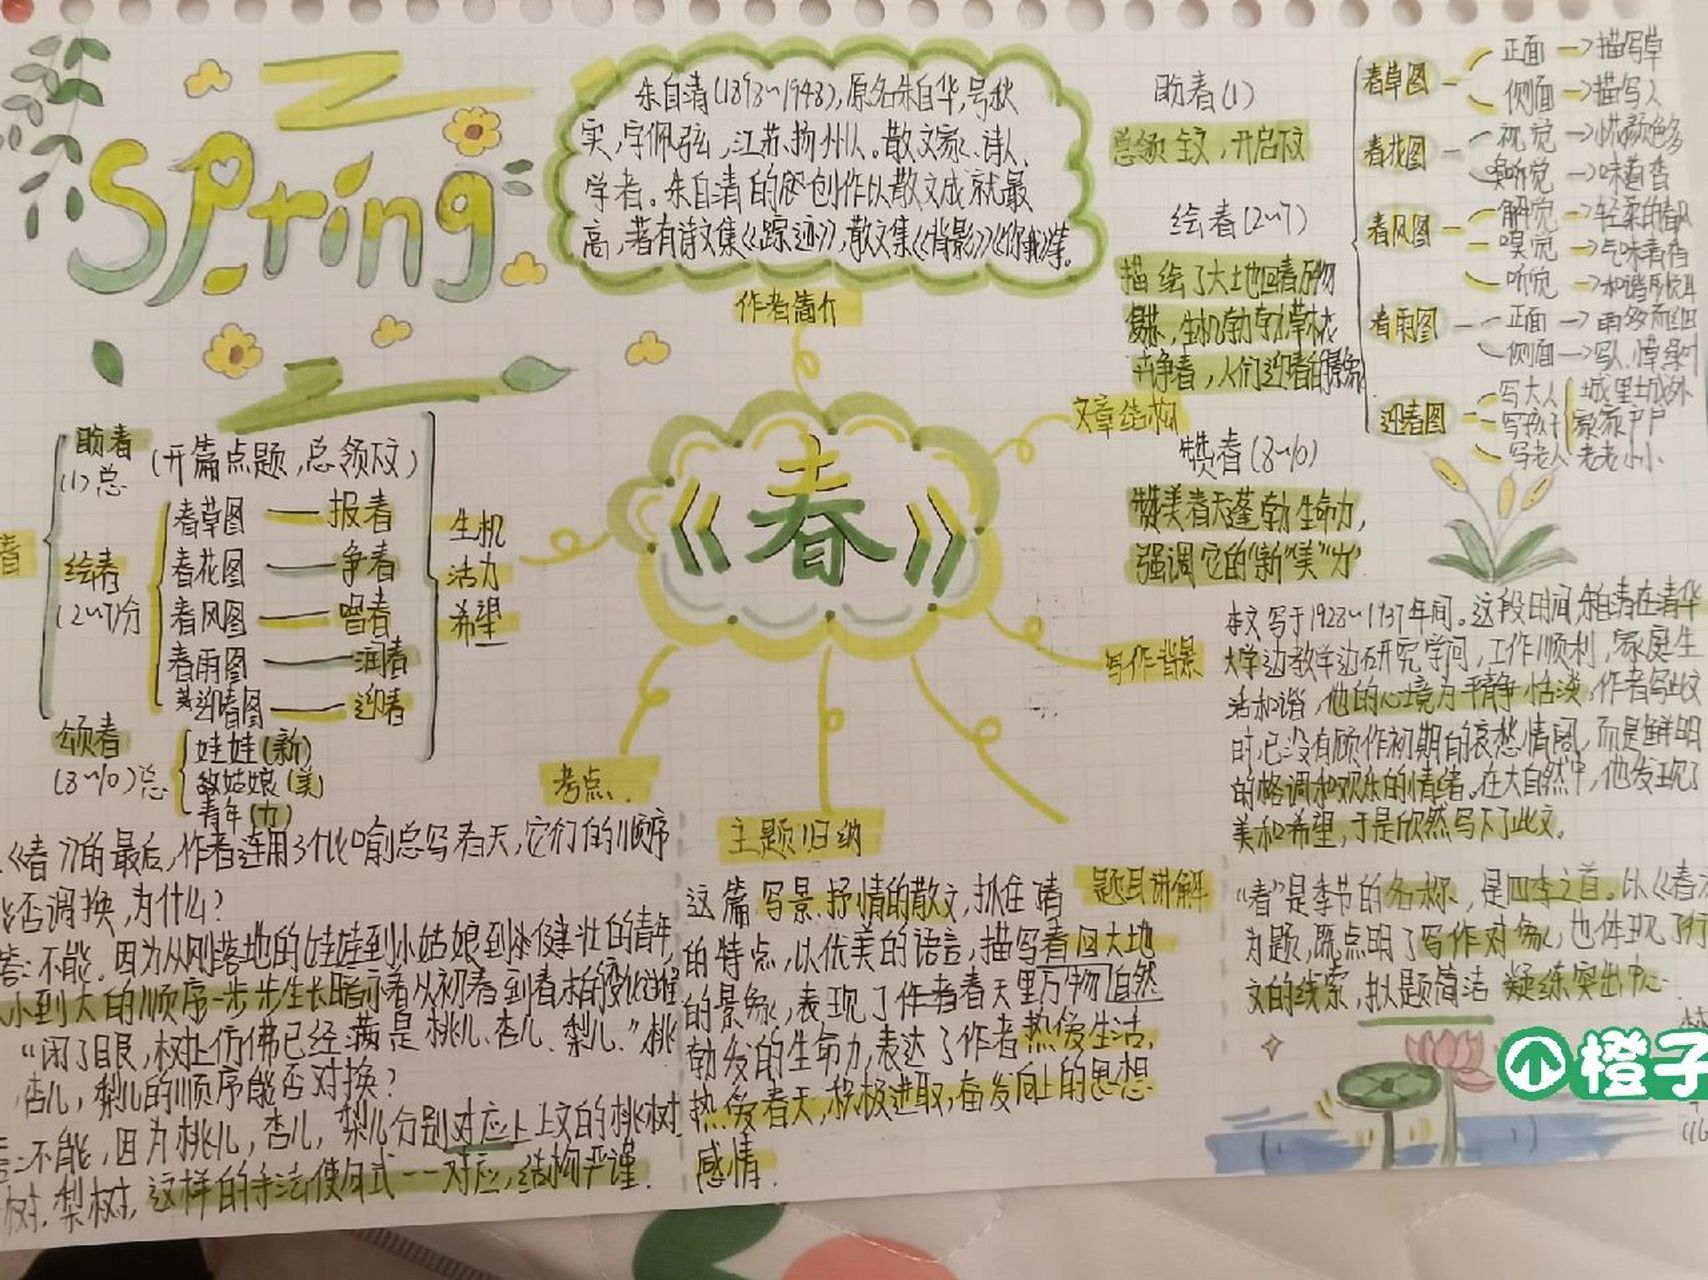 Spring
朱自清(1898~1948),原名朱自华,号秋
实,字佩弦,江苏扬州人。散文家、诗人、
学者。朱自清的创作以散文成就最
高,著有诗文集《踪迹》,散文集《背影》《你我》等。
作者简介
盼春(1)
总领全文,开启下文
绘春(2~7)
描绘了大地回春万物
复苏,生机勃勃草木
争春,人们迎春的景象
文章结构
赞春(8~10)
赞美春天蓬勃生命力,
强调它的"新""美""力"
春草图
正面→描写草
侧面→描写人
春花图
视觉→
嗅觉→味道香
春风图
触觉→轻柔的春风
嗅觉→气味清香
听觉→和谐
春雨图
正面→雨多而细
侧面→写人
迎春图
写大人
写孩子
写老人
城里城外
家家户户
老老小小
《春》
春
盼春
(1)总
(开篇点题,总领下文)
绘春
(2~7)分
春草图——报春
春花图——争春
春风图——唱春
春雨图——润春
迎春图——迎春
颂春
(8~10)总
娃娃(新)
姑娘(美)
青年(力)
生机
活力
希望
写作背景
本文写于1928~1937年间。这段时间朱自清在清华
大学边教学边研究学问,工作顺利,家庭生
活和谐,他的心境为平静恬淡,作者写此文
时,已没有创作初期的哀愁情调,而是鲜明
的格调和欢乐的情绪。在大自然中,他发现了
美和希望,于是欣然写下了此文。
考点
主题归纳
题目讲解
《春》的最后,作者连用3个比喻总写春天,它们的顺序
能否调换,为什么?
答:不能。因为从刚落地的娃娃到小姑娘到健壮的青年,
小到大的顺序一步步生长暗示着从初春到春末的变化过程
"闭了眼,树上仿佛已经满是桃儿、杏儿、梨儿。"桃
杏儿,梨儿的顺序能否对换?
答:不能,因为桃儿,杏儿,梨儿分别对应上文的桃树
树,梨树,这样的手法使句式一一对应,结构严谨.
这篇写景抒情的散文,抓住
的特点,以优美的语言,描写春回大地
的景象,表现了作者春天里万物自然
勃发的生命力,表达了作者热爱生活,
热爱春天,积极进取,奋发向上的思想
感情.
"春"是季节的名称,是四季之首。以《春》
为题,既点明了写作对象,也体现了行
文的线索,拟题简洁凝练突出中心.
橙子